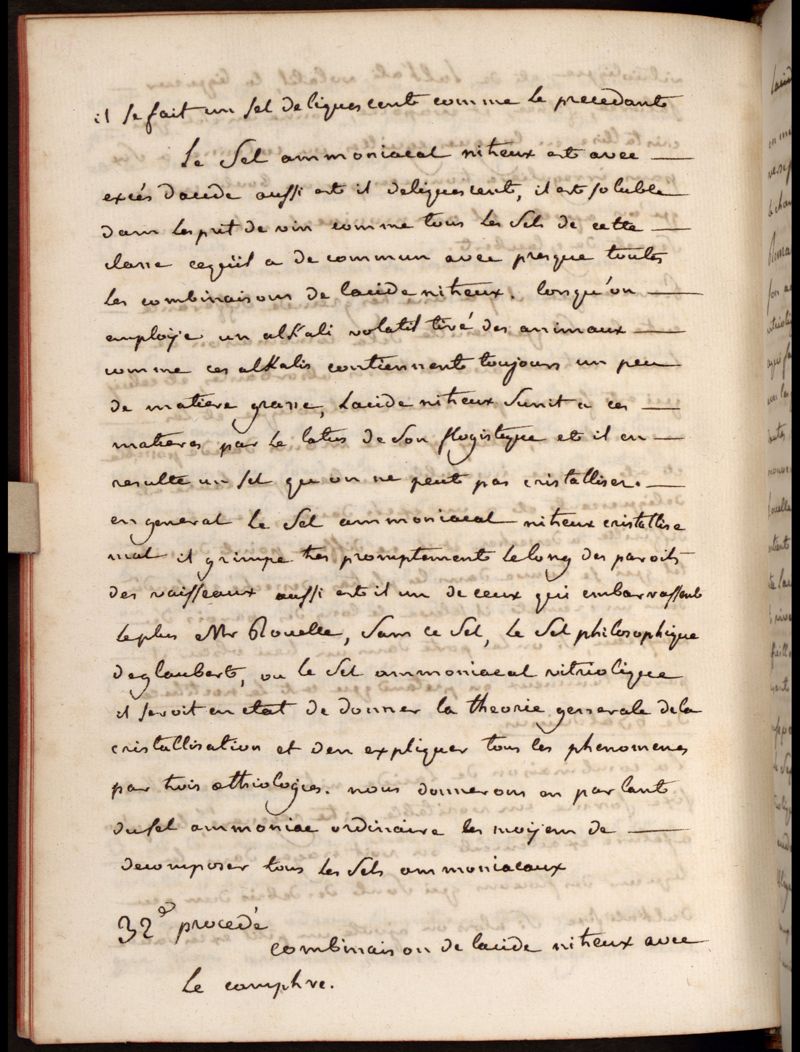 il se fait un sel deliquescent comme le precedant
Le Sel ammoniacal nitreux est avec —
excés dacide aussi est il deliquescent, il est soluble
dans lesprit de vin comme tous les Sels de cette —
classe cequil a de commun avec presque toutes
les combinaisons de lacide nitreux. lorsqu'on —
employe un alKali volatil tiré des animaux —
comme ces alKalis contiennent toujours un peu
de matiere grasse, Lacide nitreux Sunit a ces —
matieres par le latus de Son flogistique et il en —
resulte un Sel qu on ne peut pas cristalliser. —
en general le Sel ammoniacal nitreux cristallise
mal il grimpe tres promptement le long des paroits
des vaisseaux aussi est il un de ceux qui embarrassent
le plus Mr Rouelle, Sans ce Sel, le Sel philosophique
de glaubert, ou le Sel ammoniacal vitriolique
il seroit en etat de donner la theorie generale de la
cristallisation et den expliquer tous les phenomenes
par trois æthiologies. nous donnerons en parlant
du Sel ammoniac ordinaire les moyens de —
decomposer tous les Sels ammoniacaux
32e procedé
combinaison de lacide nitreux avec
le camphre.